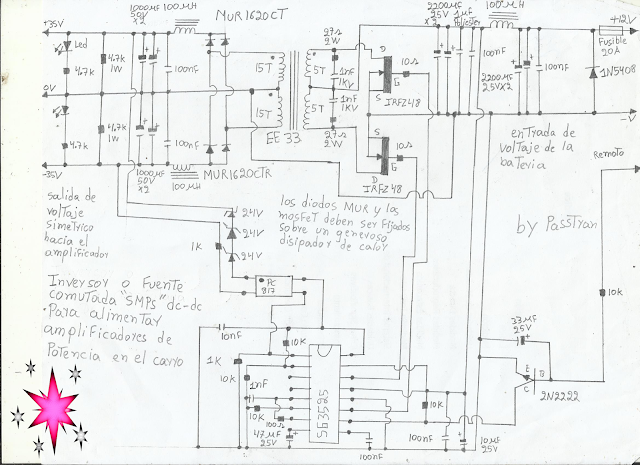 1000MF
50V
X2
100MH
MUR1620CT
+35V
Led
4.7K
4.7K
1W
100NF
0V
4.7K
1W
4.7K
100NF
-35V
1000MF
50V
X2
100MH
MUR1620CTR
15T
15T
5T
5T
EE 33
27Ω
2W
1NF
1KV
1NF
1KV
27Ω
2W
D
10Ω
G
S
IRFZ48
S
10Ω
G
D
IRFZ48
2200MF
25V
X2
1MF
Poliester
100MH
100NF
2200MF
25VX2
100NF
+12V
Fusible
20A
1N5408
-V
entrada de
voltaje de la
bateria
Remoto
by PassTran
salida de
voltaje
simetrico
hacia el
amplificador
24V
24V
24V
1K
PC
817
los diodos MUR y los
mosFeT deben ser Fijados
sobre un generoso
disipador de calor
Inversor o Fuente
conmutada "SMPs" dc-dc
Para alimentar
amplificadores de
Potencia en el carro
10NF
10K
1K
10K
1NF
10K
100Ω
47MF
25V
SG3525
100NF
10K
100NF
10MF
25V
33MF
25V
E
B
C
2N2222
10K